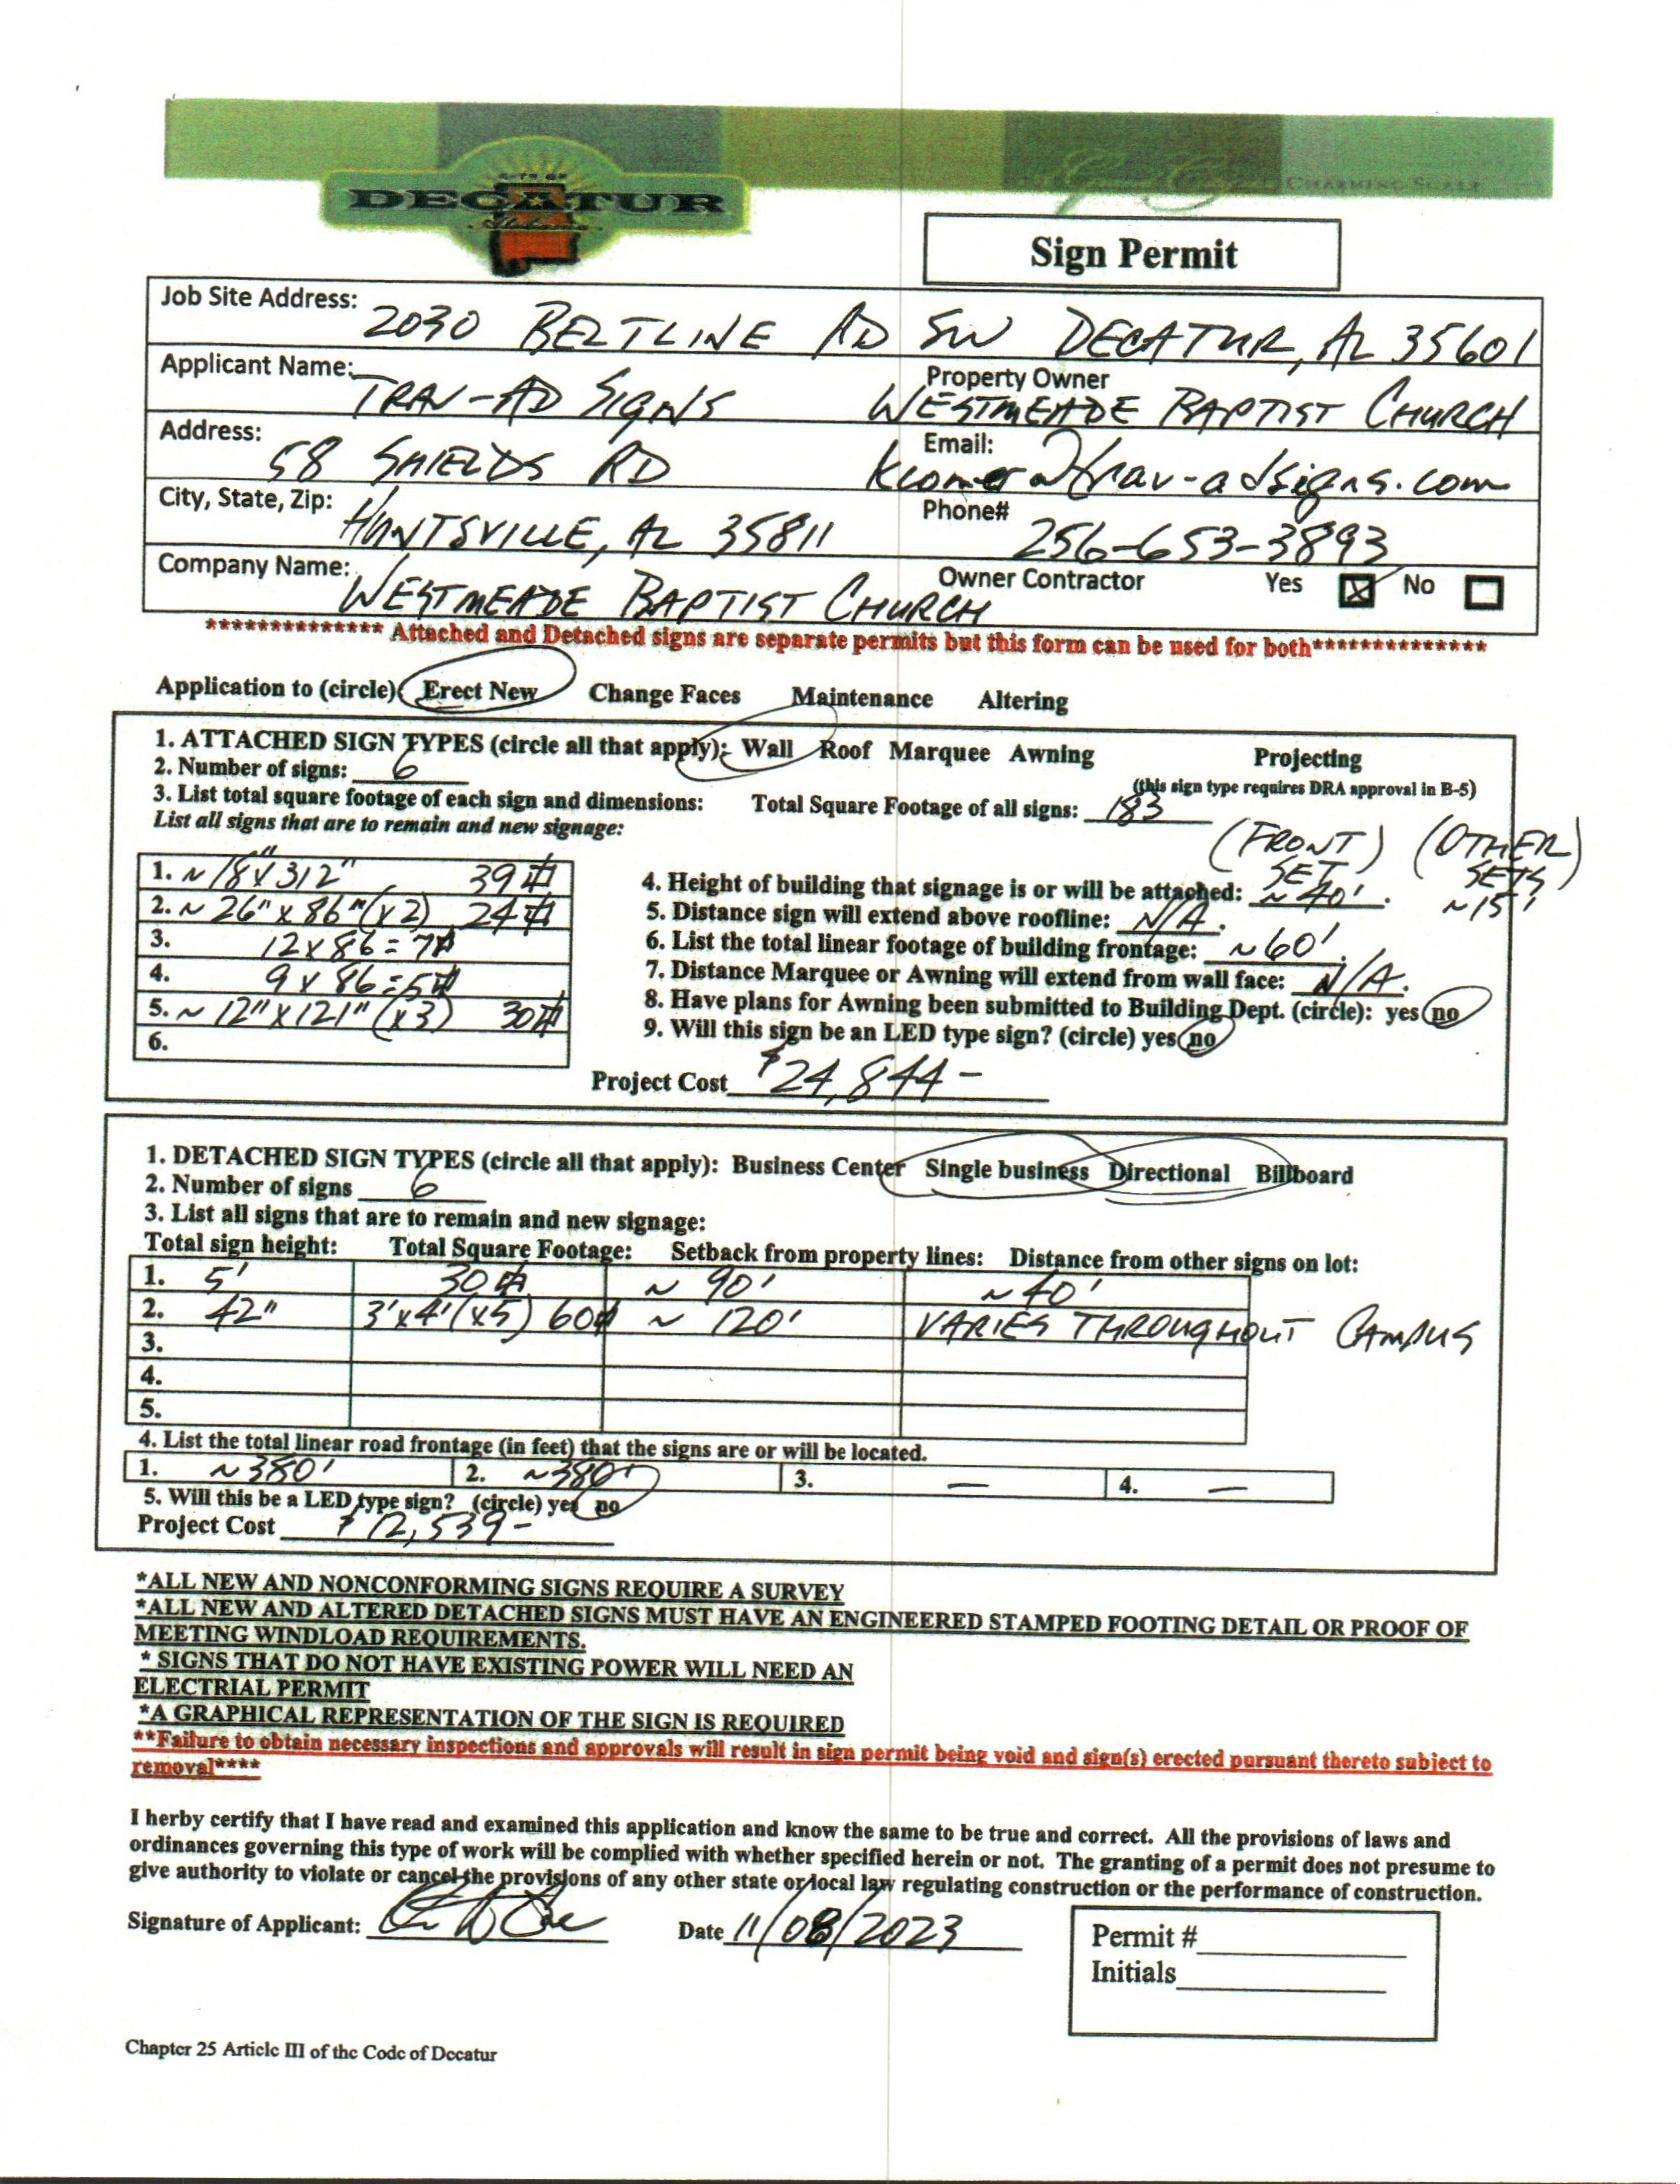 CITY OF
DECATUR
Alabama
CHARMING SCALE
Sign Permit
Job Site Address: 2030 BELTLINE RD SW DECATUR, AL 35601
Applicant Name: TRAV-AD SIGNS Property Owner WESTMEADE BAPTIST CHURCH
Address: 58 SHIELDS RD Email: kcomer@trav-adsigns.com
City, State, Zip: HUNTSVILLE, AL 35811 Phone# 256-653-3893
Company Name: WESTMEADE BAPTIST CHURCH Owner Contractor Yes ☒ No ☐
************** Attached and Detached signs are separate permits but this form can be used for both**************
Application to (circle) Erect New Change Faces Maintenance Altering
1. ATTACHED SIGN TYPES (circle all that apply): Wall Roof Marquee Awning Projecting
2. Number of signs: 6 (this sign type requires DRA approval in B-5)
3. List total square footage of each sign and dimensions: Total Square Footage of all signs: 183
List all signs that are to remain and new signage:
(FRONT SET) (OTHER SETS)
1. ~ 18" x 312" 39 ⏍
2. ~ 26" x 86" (x2) 24 ⏍
3. 12 x 86 = 7 ⏍
4. 9 x 86 = 5 ⏍
5. ~ 12" x 121" (x3) 30 ⏍
6.
4. Height of building that signage is or will be attached: ~ 40'. ~ 15'
5. Distance sign will extend above roofline: N/A.
6. List the total linear footage of building frontage: ~ 60'.
7. Distance Marquee or Awning will extend from wall face: N/A.
8. Have plans for Awning been submitted to Building Dept. (circle): yes no
9. Will this sign be an LED type sign? (circle) yes no
Project Cost $24,844-
1. DETACHED SIGN TYPES (circle all that apply): Business Center Single business Directional Billboard
2. Number of signs 6
3. List all signs that are to remain and new signage:
Total sign height: Total Square Footage: Setback from property lines: Distance from other signs on lot:
1. 5' 30 ⏍ ~ 90' ~ 40'
2. 42" 3'x4' (x5) 60 ⏍ ~ 120' VARIES THROUGHOUT CAMPUS
3.
4.
5.
4. List the total linear road frontage (in feet) that the signs are or will be located.
1. ~380' 2. ~380' 3. — 4. —
5. Will this be a LED type sign? (circle) yes no
Project Cost $12,539-
*ALL NEW AND NONCONFORMING SIGNS REQUIRE A SURVEY
*ALL NEW AND ALTERED DETACHED SIGNS MUST HAVE AN ENGINEERED STAMPED FOOTING DETAIL OR PROOF OF
MEETING WINDLOAD REQUIREMENTS.
* SIGNS THAT DO NOT HAVE EXISTING POWER WILL NEED AN
ELECTRIAL PERMIT
*A GRAPHICAL REPRESENTATION OF THE SIGN IS REQUIRED
**Failure to obtain necessary inspections and approvals will result in sign permit being void and sign(s) erected pursuant thereto subject to
removal****
I herby certify that I have read and examined this application and know the same to be true and correct. All the provisions of laws and
ordinances governing this type of work will be complied with whether specified herein or not. The granting of a permit does not presume to
give authority to violate or cancel the provisions of any other state or local law regulating construction or the performance of construction.
Signature of Applicant: Date 11/08/2023
Permit #
Initials
Chapter 25 Article III of the Code of Decatur